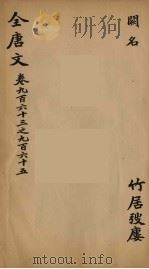 闕名
竹居廔
全唐文
卷九百六十三之九百六十五